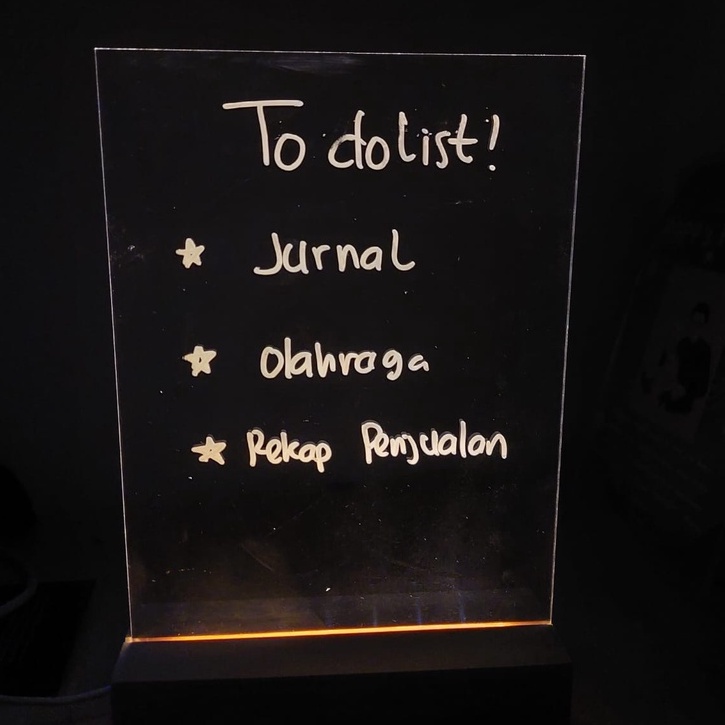 To do list!
★ Jurnal
★ Olahraga
★ Rekap Penjualan